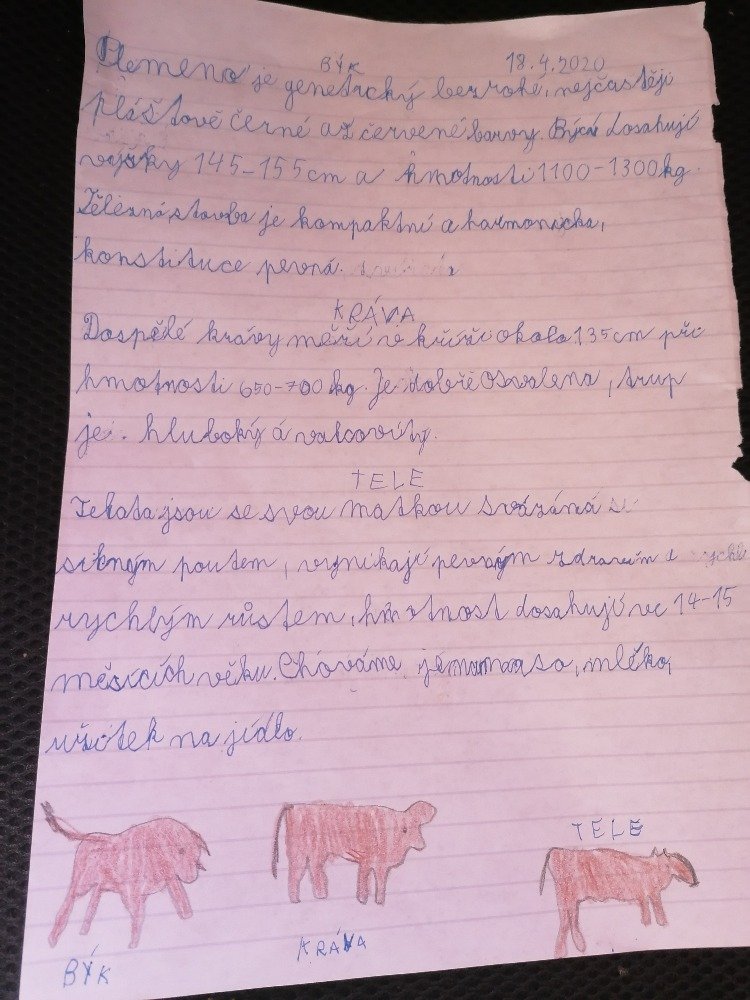 BÝK 18.4.2020
Plemeno je genetický bezrohé, nejčastěji
plášťově černé až červené barvy. Býci dosahují
výšky 145-155cm a hmotnosti 1100-1300kg.
Tělesná stavba je kompaktní a harmonická,
konstituce pevná.
KRÁVA
Dospělé krávy měří v kříži okolo 135cm při
hmotnosti 650-700kg. Je dobře osvalena, trup
je hluboký a válcovitý.
TELE
Telata jsou se svou matkou svázána
silným poutem, vynikají pevným zdravím a
rychlým růstem, hmotnost dosahují ve 14-15
měsících věku. Chováme je na maso, mléko,
užitek na jídlo.
TELE
BÝK KRÁVA